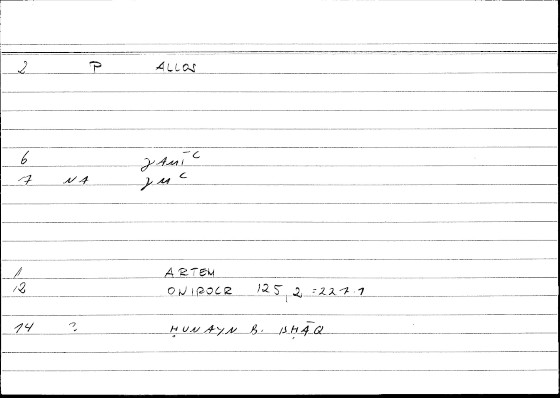 2 P ALLOS
6 ǧAMĪʿ
7 NA ǧMʿ
1 ARTEM
12 ONIROCR 125,2 = 227.1
14 ? ḤUNAYN B. ISḤĀQ